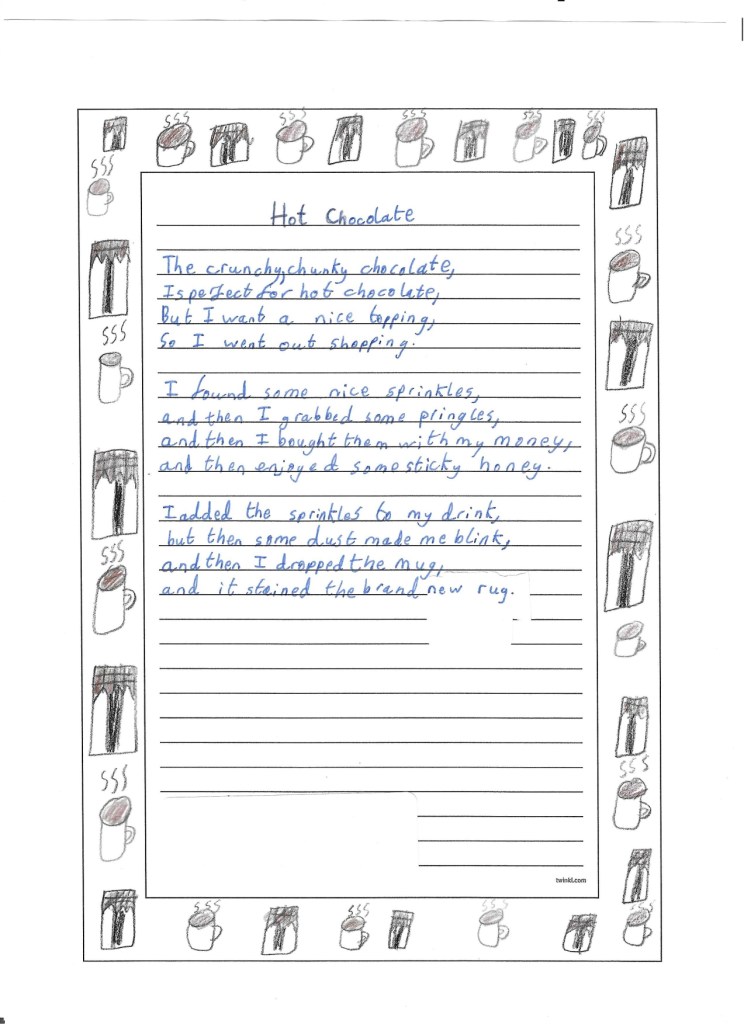 Hot Chocolate
The crunchy, chunky chocolate,
Is perfect for hot chocolate,
But I want a nice topping,
So I went out shopping.
I found some nice sprinkles,
and then I grabbed some pringles,
and then I bought them with my money,
and then enjoyed some sticky honey.
I added the sprinkles to my drink,
but then some dust made me blink,
and then I dropped the mug,
and it stained the brand new rug.
twinkl.com